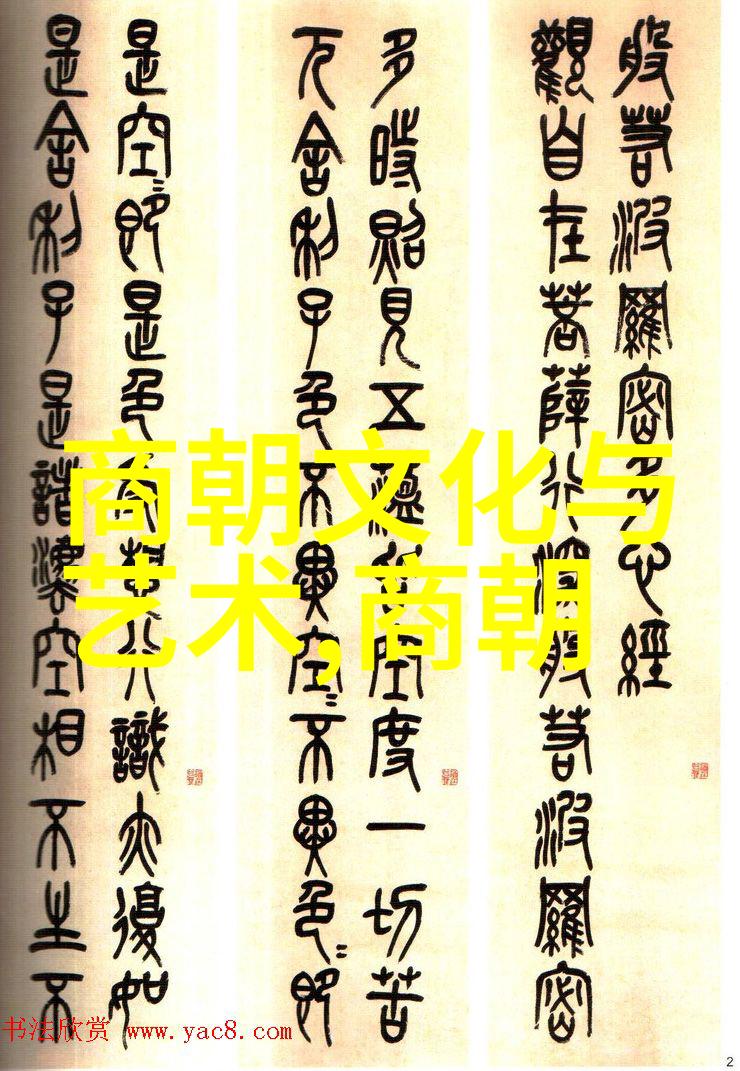 般若波羅密多心經
觀自在菩薩行深般若波羅密
多時照見五蘊皆空度一切苦
厄舍利子色不異空〻不異色〻即
是空〻即是色受想行識亦復如
是舍利子是諸法空相不生不
商朝文化与
艺术,商朝
书法欣赏 www.yac8.com
2